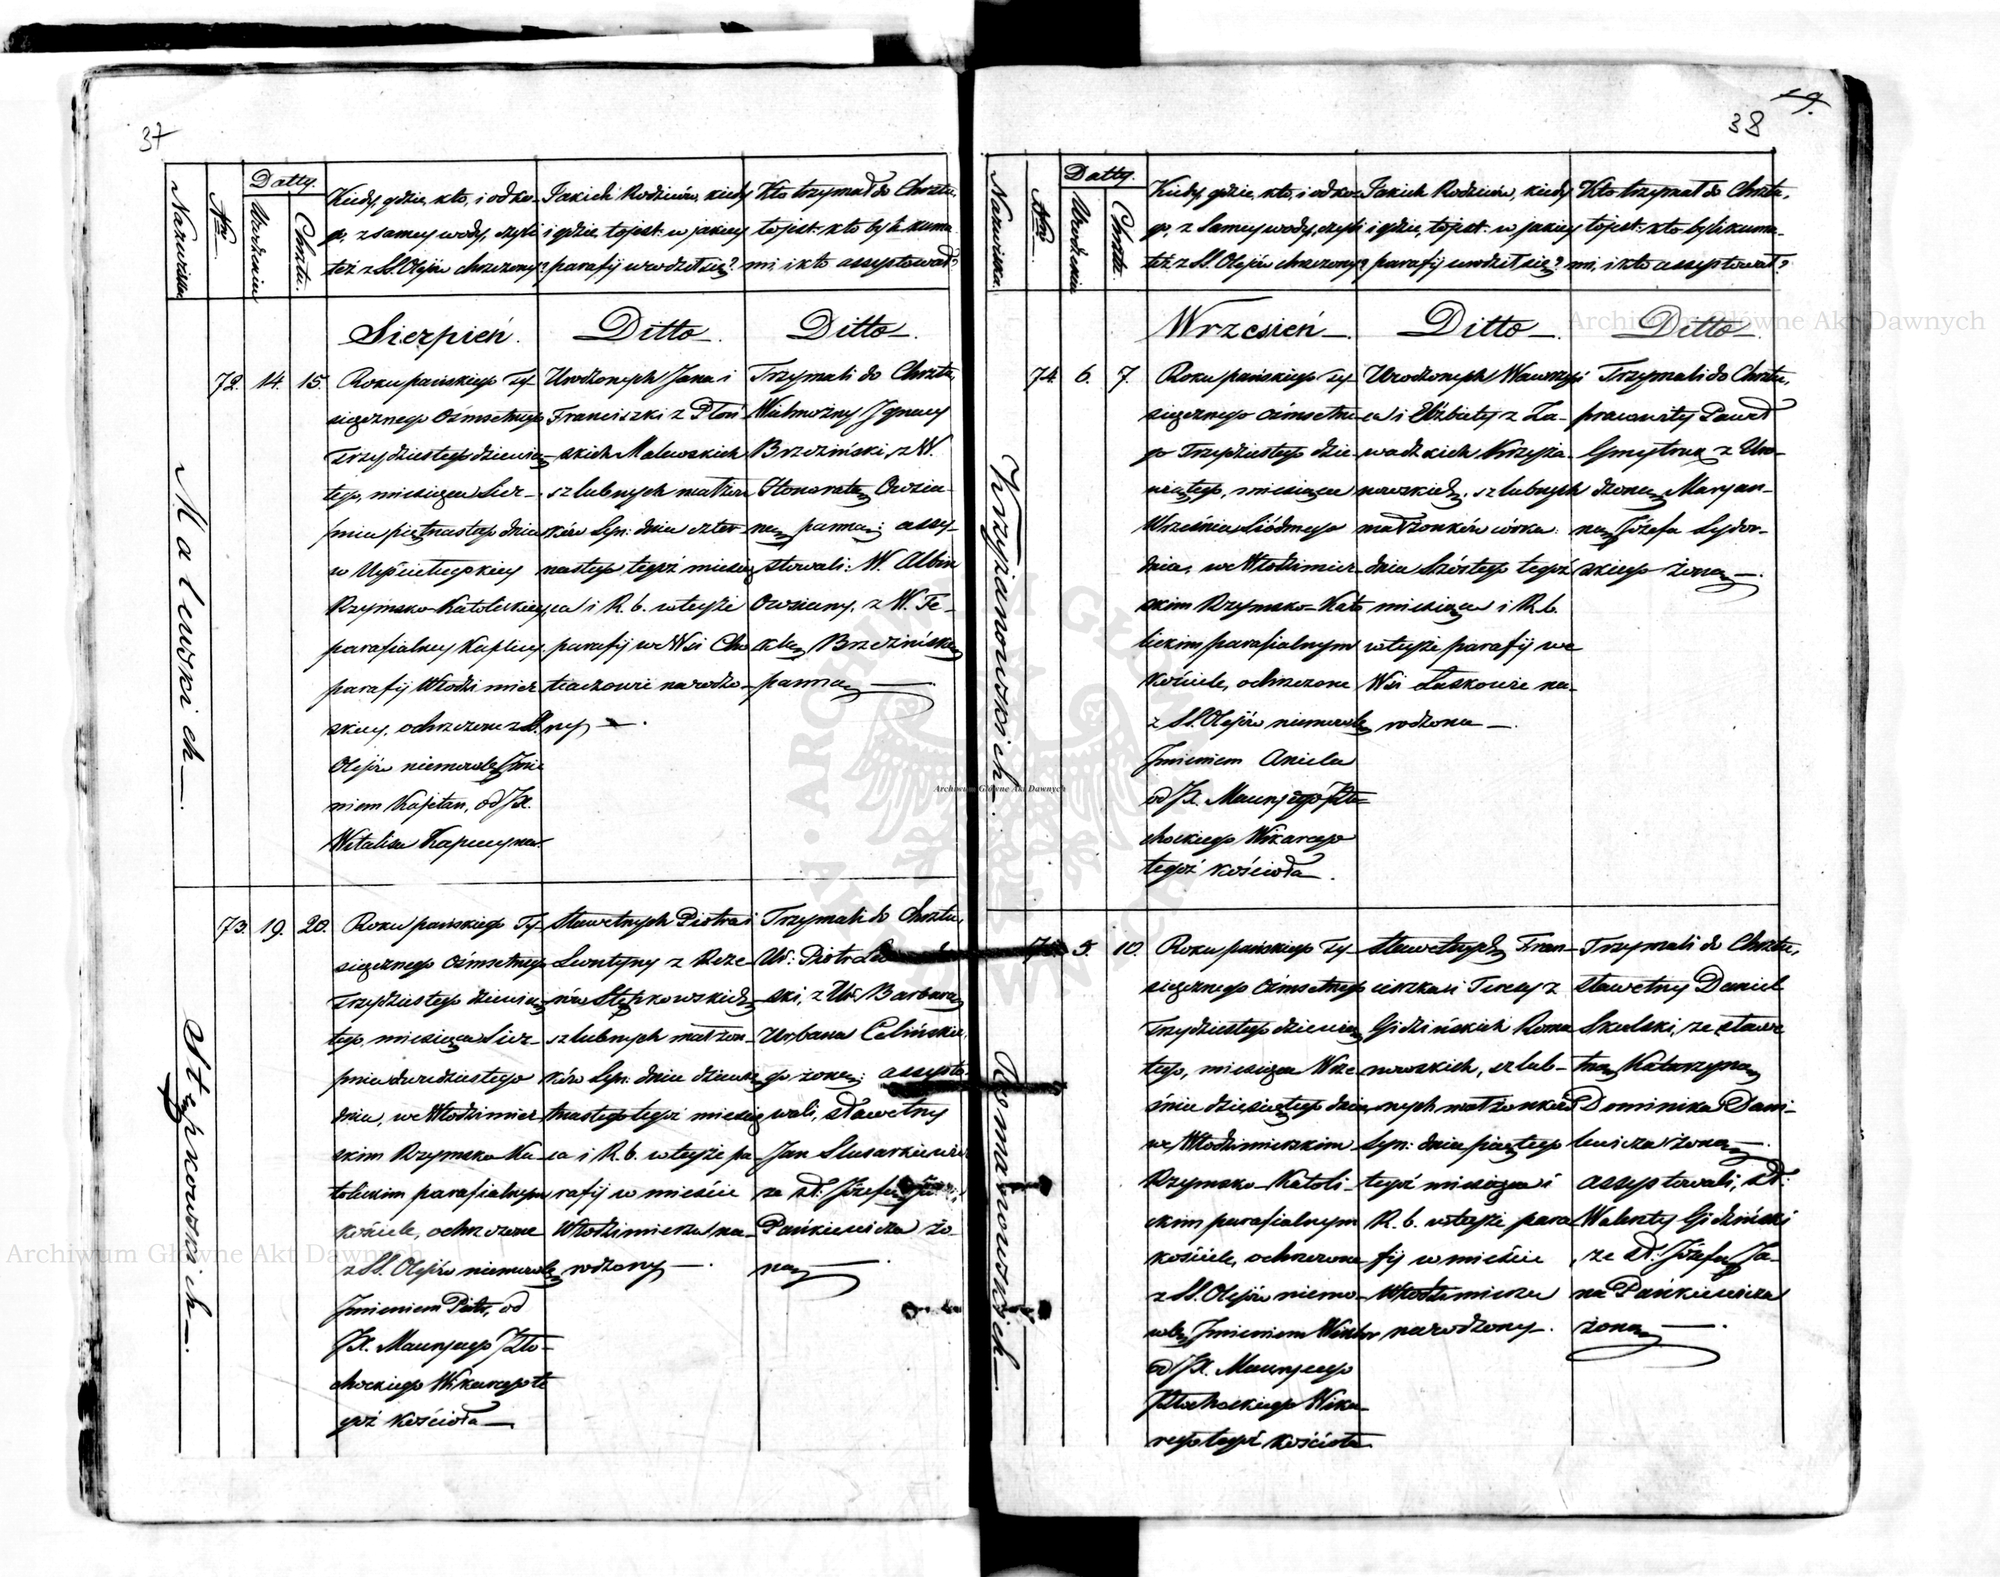 37
Nazwiska.
Nro
Datty.
Urodzenia
Chrztu.
Kiedy, gdzie, kto, i od ko-
go, z samey wody, czyli
też z SS. Olejów chrzczony?
Jakich Rodziców, kiedy
i gdzie, to jest: w jakiey
parafij urodził się?
Kto trzymał do Chrztu,
to jest: kto byli kuma-
mi, i kto assystował?
Sierpień.
Ditto.
Ditto.
Malewskich.
72. 14. 15.
Roku pańskiego Ty-
siącznego Ośmsetnego
Trzydziestego dziewią-
tego, miesiąca Sier-
pnia piętnastego dnia
w Uściługskiey
Rzymsko-Katolickiey
parafialney Kaplicy
parafij Włodzimier
skiey, ochrzczone z SS.
Olejów niemowle Imie
niem Kajetan, od JX.
Witalisa Kapucyna.
Urodzonych Jana i
Franciszki z Płoń
skich Malewskich
szlubnych małżon
ków Syn: dnia czter
nastego tegoż miesią
ca i R. b. w teyże
parafij we Wsi Cho
tiaczowie narodzo-
ny.
Trzymali do Chrztu,
Wielmożny Ignacy
Brzeziński, z W.
Honoratą Owsia-
ną panną; assy-
stowali: W. Albin
Owsiany, z W. Te-
klą Brzezińską
panną
Stępkowskich.
73. 19. 20.
Roku pańskiego Ty-
siącznego Ośmsetnego
Trzydziestego dziewią
tego, miesiąca Sier-
pnia dwudziestego
dnia, we Włodzimier
skim Rzymsko Ka
tolickim parafialnym
kościele, ochrzczone
z SS. Olejów niemowle
Imieniem Piotr, od
JX. Maurycego Pto-
chockiego Wikarego te
goż kościoła
Sławetnych Piotra i
Leontyny z Reze
rów Stępkowskich
szlubnych małżon-
ków Syn: dnia dziewię
tnastego tegoż miesią
ca i R. b. w teyże pa-
rafij w mieście
Włodzimierzu na-
rodzony
Trzymali do Chrztu,
Ur: Piotr
ski, z Ur: Barbarą
Urbana Celińskie
go żoną; assysto-
wali, sławetny
Jan Slusarkiewicz
ze sł: Józefą
Pańkiewicza żo-
ną
19.
38
Nazwiska.
Nro
Datty.
Urodzenia
Chrztu.
Kiedy, gdzie, kto, i od ko-
go, z Samey wody, czyli
też z SS. Olejów chrzczony?
Jakich Rodziców, kiedy
i gdzie, to jest: w jakiey
parafij urodził się?
Kto trzymał do Chrztu,
to jest: kto byli kuma-
mi, i kto assystował?
Wrzesień
Ditto
Ditto
Krzyżanowskich
74. 6. 7.
Roku pańskiego Ty-
siącznego Ośmsetne
go Trzydziestego dzie-
wiątego, miesiąca
Września Siódmego
dnia, we Włodzimier
skim Rzymsko-Kato
lickim parafialnym
kościele, ochrzczone
z SS. Olejów niemowle
Imieniem Aniela
od JX. Maurycego Pto-
chockiego Wikarego
tegoż kościoła.
Urodzonych Wawrzyń
ca i Elżbiety z Za-
wadzkich Krzyża-
nowskich, szlubnych
małżonków córka:
dnia Szóstego tegoż
miesiąca i R. b.
w teyże parafij we
Wsi Łaskowie na-
rodzona
Trzymali do Chrztu,
pracowity Paweł
Gmytruk z Uro-
dzoną Maryan-
ną Józefa Sydor-
skiego żoną
Romanowskich
5. 10.
Roku pańskiego Ty-
siącznego Ośmsetnego
Trzydziestego dziewią
tego, miesiąca Wrze
śnia dziesiątego dnia
we Włodzimierskim
Rzymsko-Katoli-
ckim parafialnym
kościele, ochrzczone
z SS. Olejów niemo-
wle Imieniem Wiktor
od JX. Maurycego
Ptochockiego Wika-
rego tegoż kościoła
Sławetnych Fran-
ciszka i Teresy z
Gidzińskich Roma
nowskich, szlub-
nych małżonków
Syn: dnia piątego
tegoż miesiąca i
R. b. w teyże para
fij w mieście
Włodzimierzu
narodzony.
Trzymali do Chrztu,
sławetny Daniel
Skulski, ze sławe
tną Katarzyną
Dominika Dani-
lewicza żoną
assystowali, sł:
Walenty Gidziński
ze sł: Józefą Ja-
na Pańkiewicza
żoną
Archiwum Główne Akt Dawnych
Archiwum Główne Akt Dawnych
Archiwum Główne Akt Dawnych